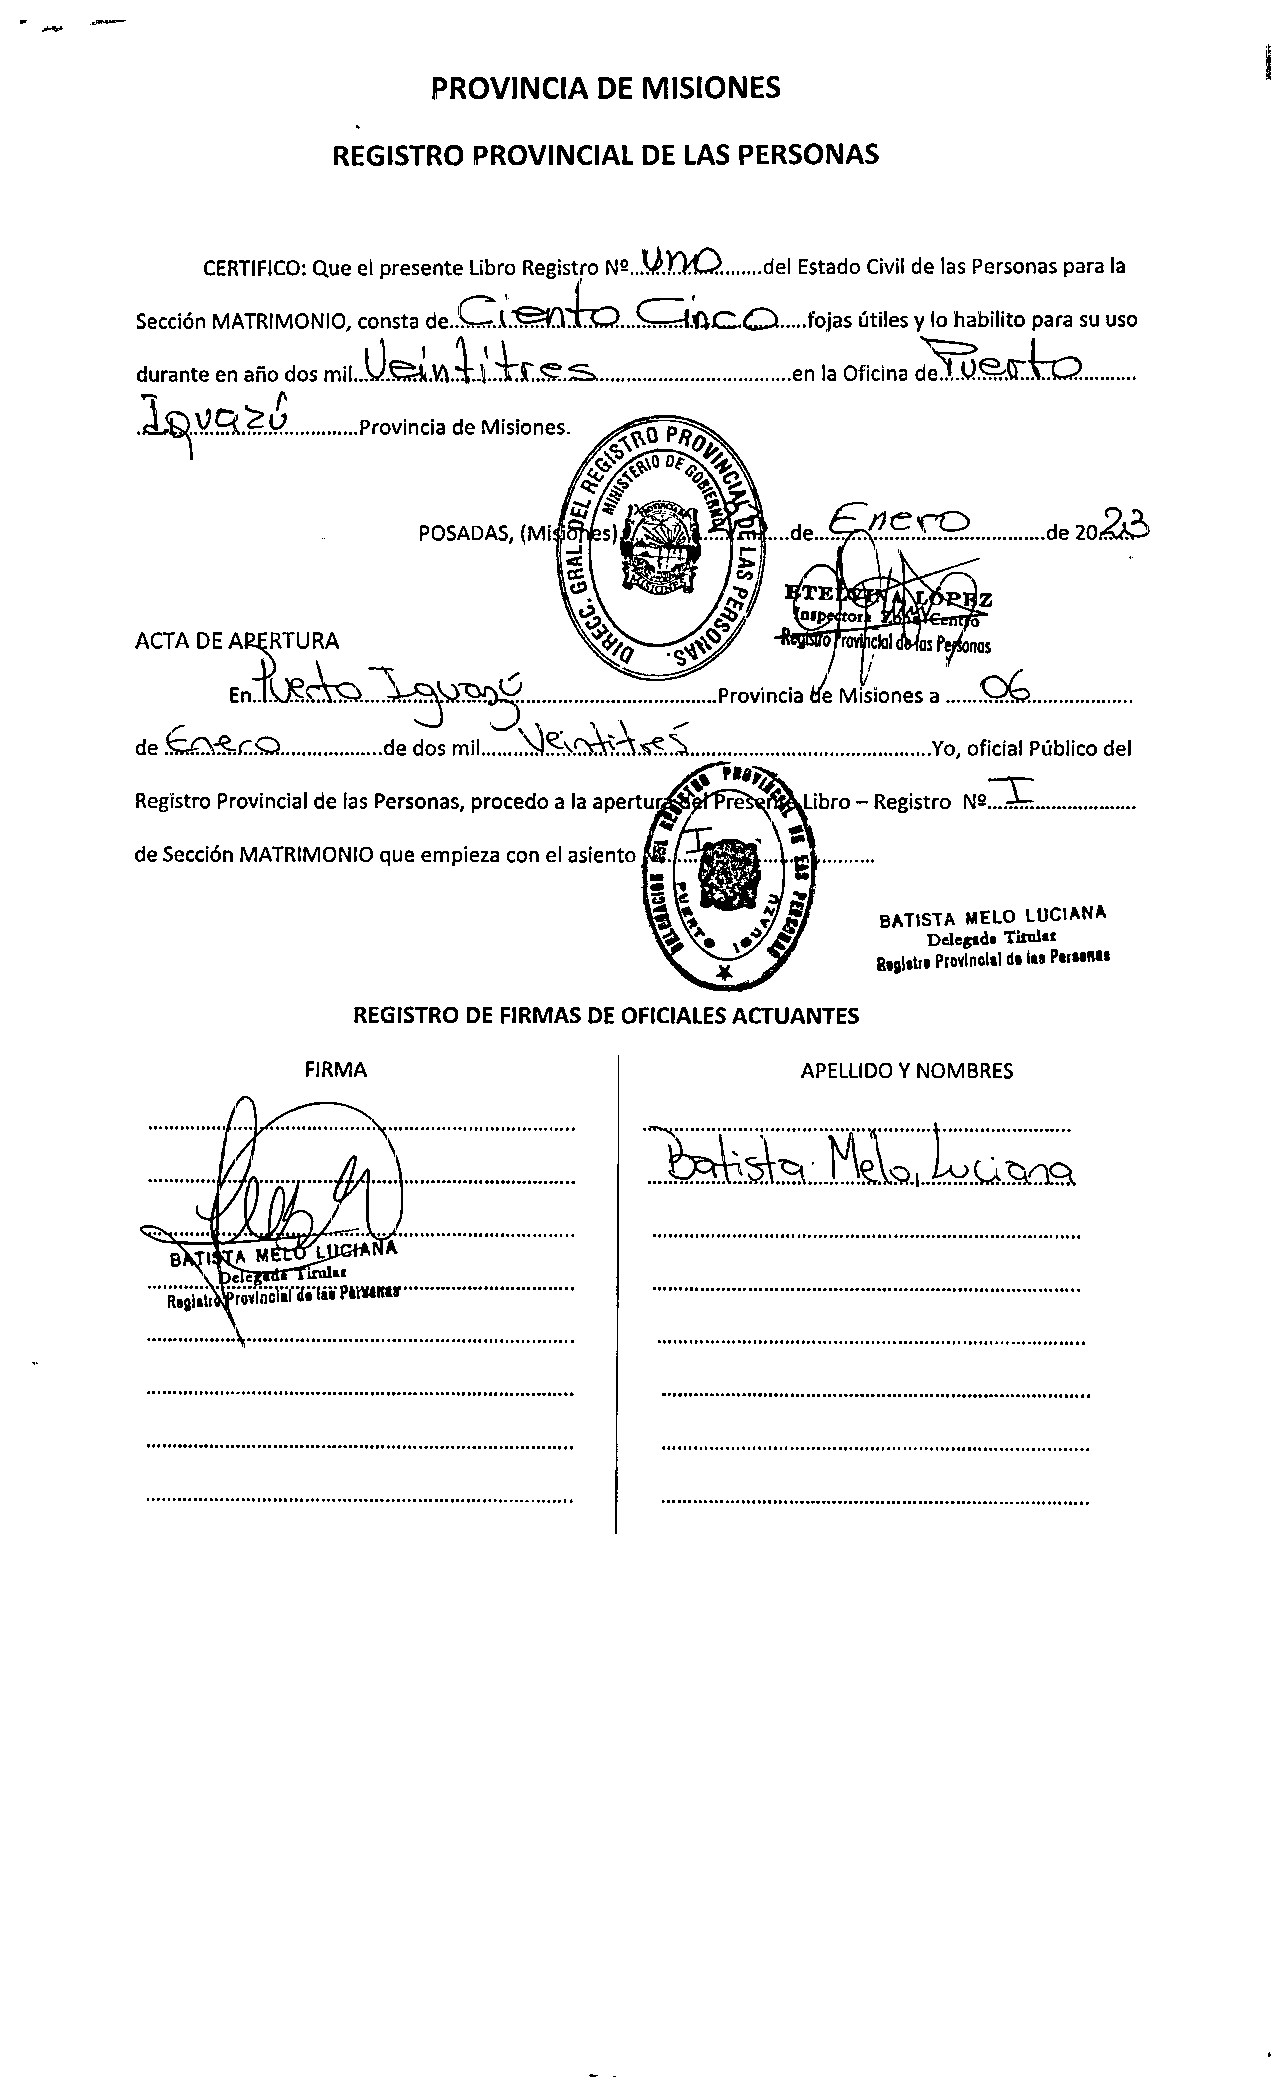 PROVINCIA DE MISIONES
REGISTRO PROVINCIAL DE LAS PERSONAS
CERTIFICO: Que el presente Libro Registro Nº...uno........del Estado Civil de las Personas para la
Sección MATRIMONIO, consta de..Ciento Cinco....fojas útiles y lo habilito para su uso
durante en año dos mil..Veintitres......................en la Oficina de.Puerto..........
.Iguazú............Provincia de Misiones.
DIRECC. GRAL. DEL REGISTRO PROVINCIAL DE LAS PERSONAS.
MINISTERIO DE GOBIERNO
POSADAS, (Misiones) ....de...Enero..............de 2023
ETELVINA LÓPEZ
Inspectora Zona Centro
Registro Provincial de las Personas
ACTA DE APERTURA
En.Puerto Iguazú......................Provincia de Misiones a ......06..................
de Enero.................de dos mil.......Veintitrés..............................Yo, oficial Público del
Registro Provincial de las Personas, procedo a la apertura del Presente Libro – Registro Nº...I..................
de Sección MATRIMONIO que empieza con el asiento ...I..................
DELEGACION DEL REGISTRO PROVINCIAL DE LAS PERSONAS
PUERTO IGUAZU
BATISTA MELO LUCIANA
Delegada Titular
Registro Provincial de las Personas
REGISTRO DE FIRMAS DE OFICIALES ACTUANTES
FIRMA APELLIDO Y NOMBRES
Batista Melo, Luciana
BATISTA MELO LUCIANA
Delegada Titular
Registro Provincial de las Personas